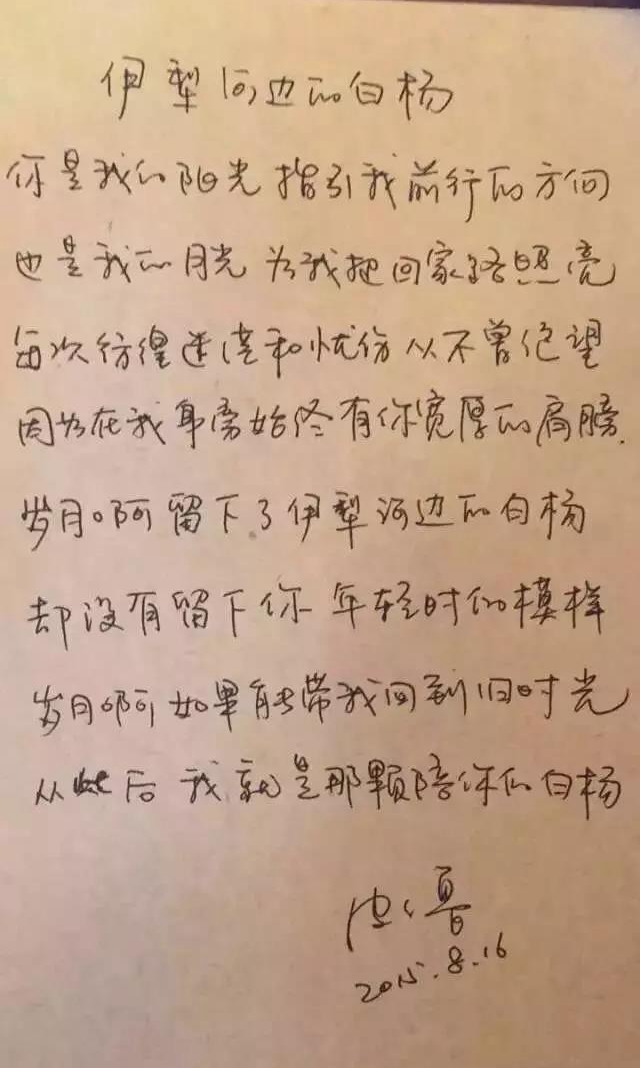 伊犁河边的白杨
你是我的阳光 指引我前行的方向
也是我的月光 为我把回家路照亮
每次彷徨迷茫和忧伤从不曾绝望
因为在我身旁始终有你宽厚的肩膀.
岁月啊留下了伊犁河边的白杨
却没有留下你年轻时的模样
岁月啊如果能带我回到旧时光
从此后 我就是那颗陪你的白杨
2015.8.16